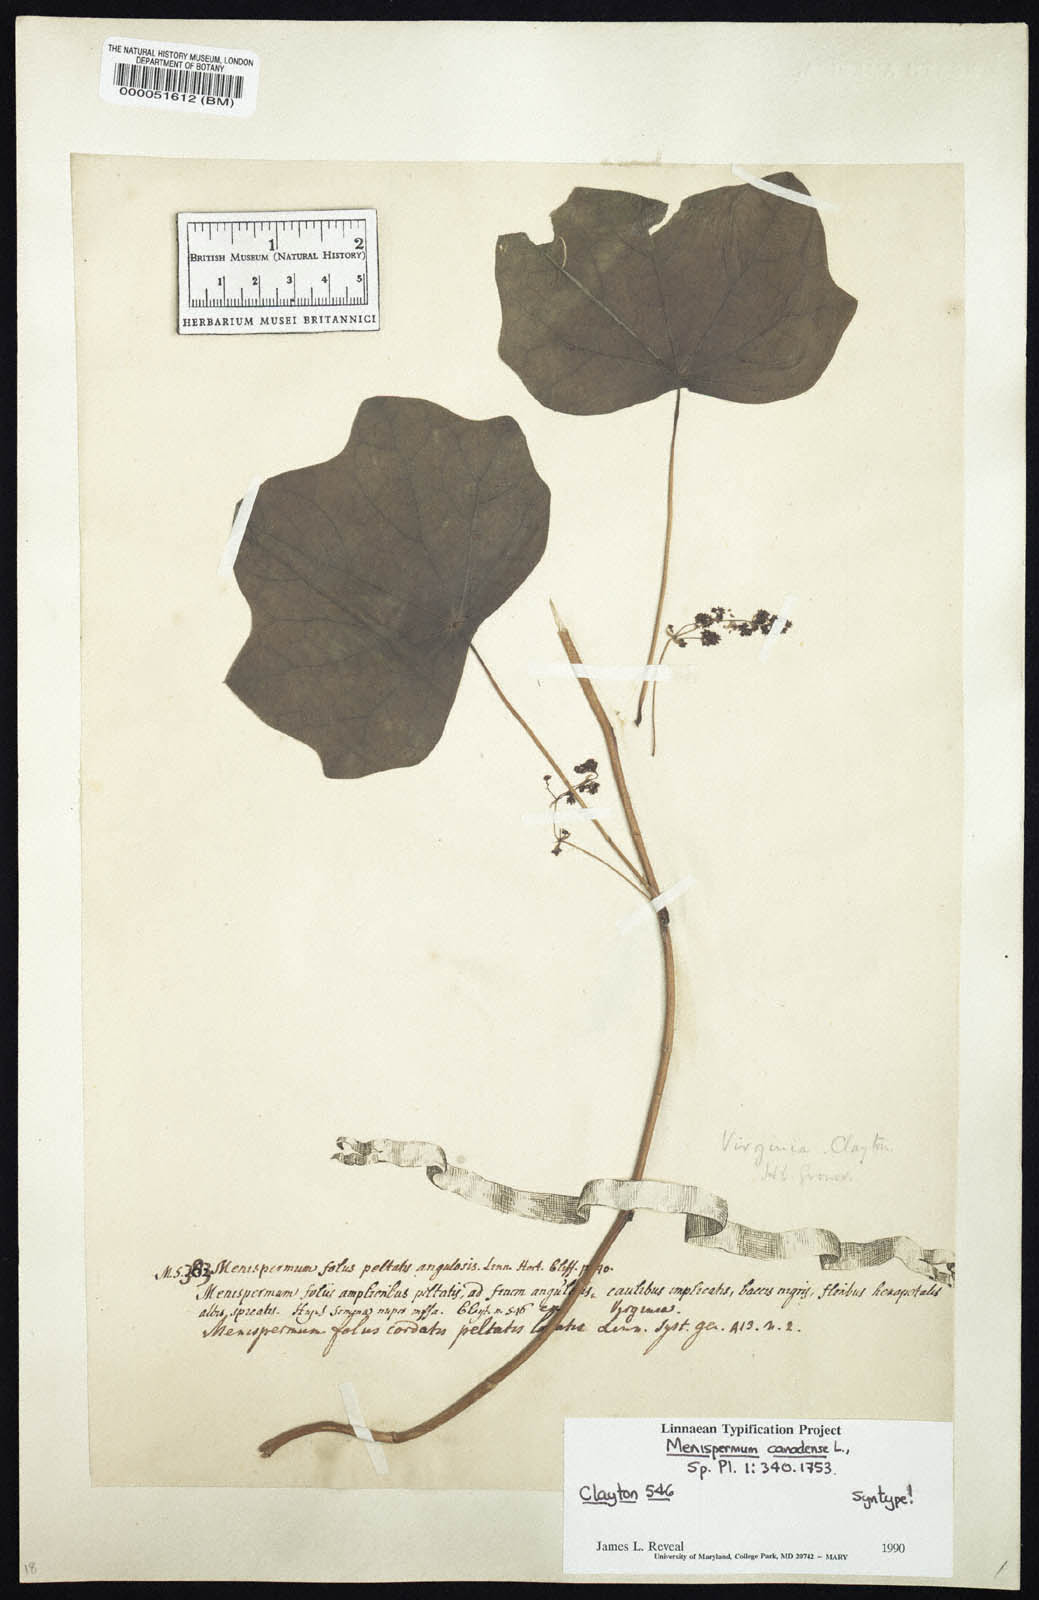 THE NATURAL HISTORY MUSEUM, LONDON
DEPARTMENT OF BOTANY
000051612 (BM)
1 2
BRITISH MUSEUM (NATURAL HISTORY)
1 2 3 4 5
HERBARIUM MUSEI BRITANNICI
Virginia. Clayton.
Hb. Gronov.
Menispermum folus peltatis angulosis. Linn. Hort. Cliff. p.
Menispermum foliis amplioribus peltatis, ad finem angulosis, caulibus implicatis, baccis nigris, floribus hexapetalis
albis, spicatis. Clayt. n. 546 Virginia.
Menispermum folus cordatis peltatis Linn. Syst. gen. 413. n. 2.
Linnaean Typification Project
Menispermum canadense L.,
Sp. Pl. 1: 340. 1753.
Clayton 546
Syntype!
James L. Reveal 1990
University of Maryland, College Park, MD 20742 – MARY
18